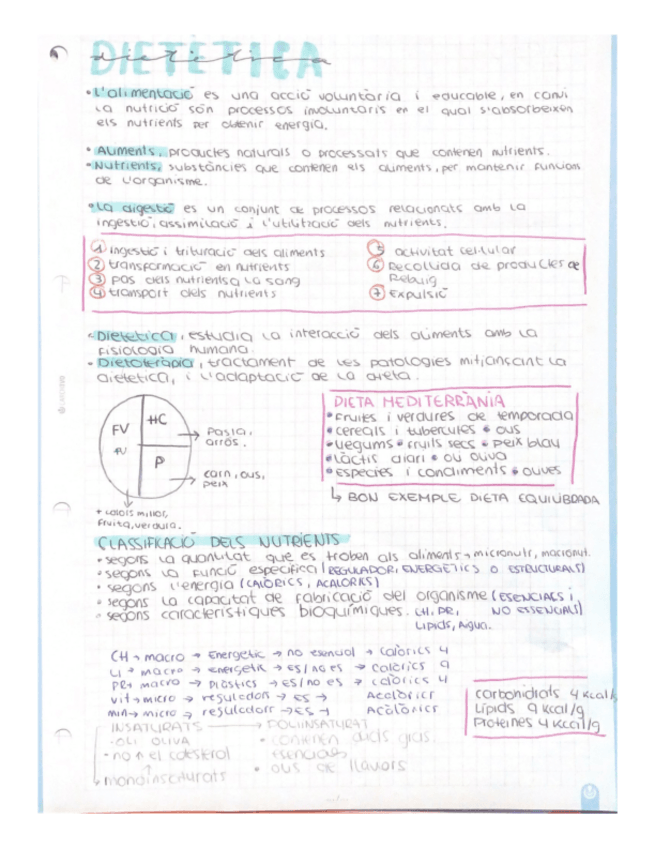 DIETÈTICA
dietètica
• L'alimentació es una acció voluntària i educable, en canvi
la nutrició són processos involuntaris en el qual s'absorbeixen
els nutrients per obtenir energia.
• Aliments, productes naturals o processats que contenen nutrients.
• Nutrients, substàncies que contenen els aliments, per mantenir funcions
de l'organisme.
• La digestió es un conjunt de processos relacionats amb la
ingestió, assimilació i l'utilització dels nutrients.
1 ingestió i trituració dels aliments
2 transformació en nutrients
3 pas dels nutrients a la sang
4 transport dels nutrients
5 activitat cel·lular
6 Recollida de productes de
Rebuig
7 Expulsió
• Dietetica, estudia la interacció dels aliments amb la
fisiologia humana.
• Dietoteràpia, tractament de les patologies mitjançant la
dietetica, i l'adaptació de la dieta.
FV
FV
HC
P
Pasta,
arròs.
carn, ous,
peix
+ colors millor,
fruita, verdura.
DIETA MEDITERRÀNIA
• Fruites i verdures de temporada
• cereals i tubercules • ous
• llegums • fruits secs • peix blau
• làctis diari • oli oliva
• espècies i condiments • olives
↳ BON EXEMPLE DIETA EQUILIBRADA
CLASSIFICACIÓ DELS NUTRIENTS
• segons la quantitat que es troben als aliments → micronutr, macronut.
• segons la funció específica (REGULADOR, ENERGÈTICS O ESTRUCTURALS)
• segons l'energia (CALÒRICS, ACALORICS)
• segons la capacitat de fabricació del organisme (ESENCIALS i
NO ESSENCIALS)
• segons característiques bioquímiques. CH, PR,
Lípids, Aigua.
CH → macro → Energetic → no esencial → calòrics 4
Li → macro → energetic → es/no es → calòrics 9
PR → macro → Plàstics → es/no es → calòrics 4
vit → micro → reguladors → es → Acalòrics
min → micro → reguladors → es → Acalòrics
carbohidrats 4 kcal/g
Lípids 9 kcal/g
Proteïnes 4 kcal/g
INSATURATS → POLIINSATURAT
- OLI OLIVA
- no ↑ el colesterol
↳ monoinsaturats
• contenen àcids grais
esencials
• ous de llavors